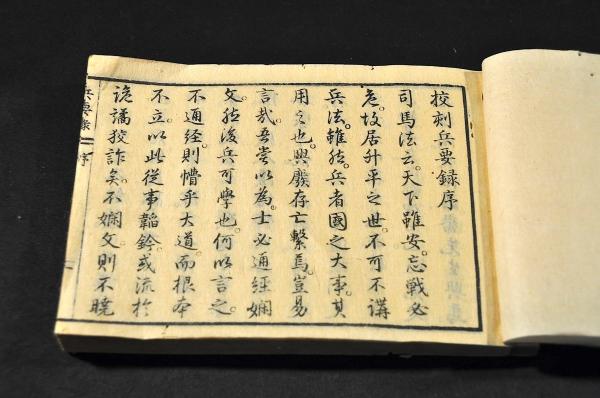 挍刻兵要録序
司馬法云。天下雖安。忘戰必
危。故居升平之世。不可不講
兵法。雖然。兵者國之大事。其
用之也。興廢存亡繫焉。豈易
言哉。吾嘗以為。士必通經嫻
文。然後兵可學也。何以言之。
不通經。則懵乎大道。而根本
不立。以此從事韜鈐。或流於
詭譎狡詐矣。不嫻文。則不曉
兵要錄
序